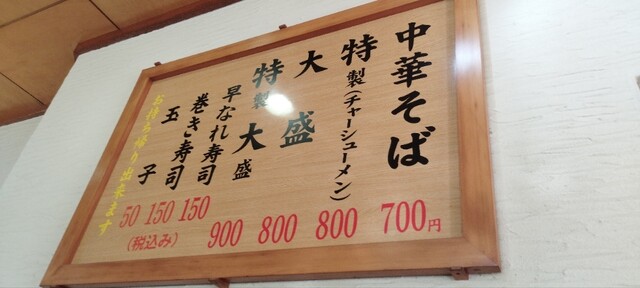 中華そば 700円
特製(チャーシューメン) 800
大盛 800
特製大盛 900
早なれ寿司 150
巻き寿司 150
玉子 50
(税込み)
お持ち帰り出来ます